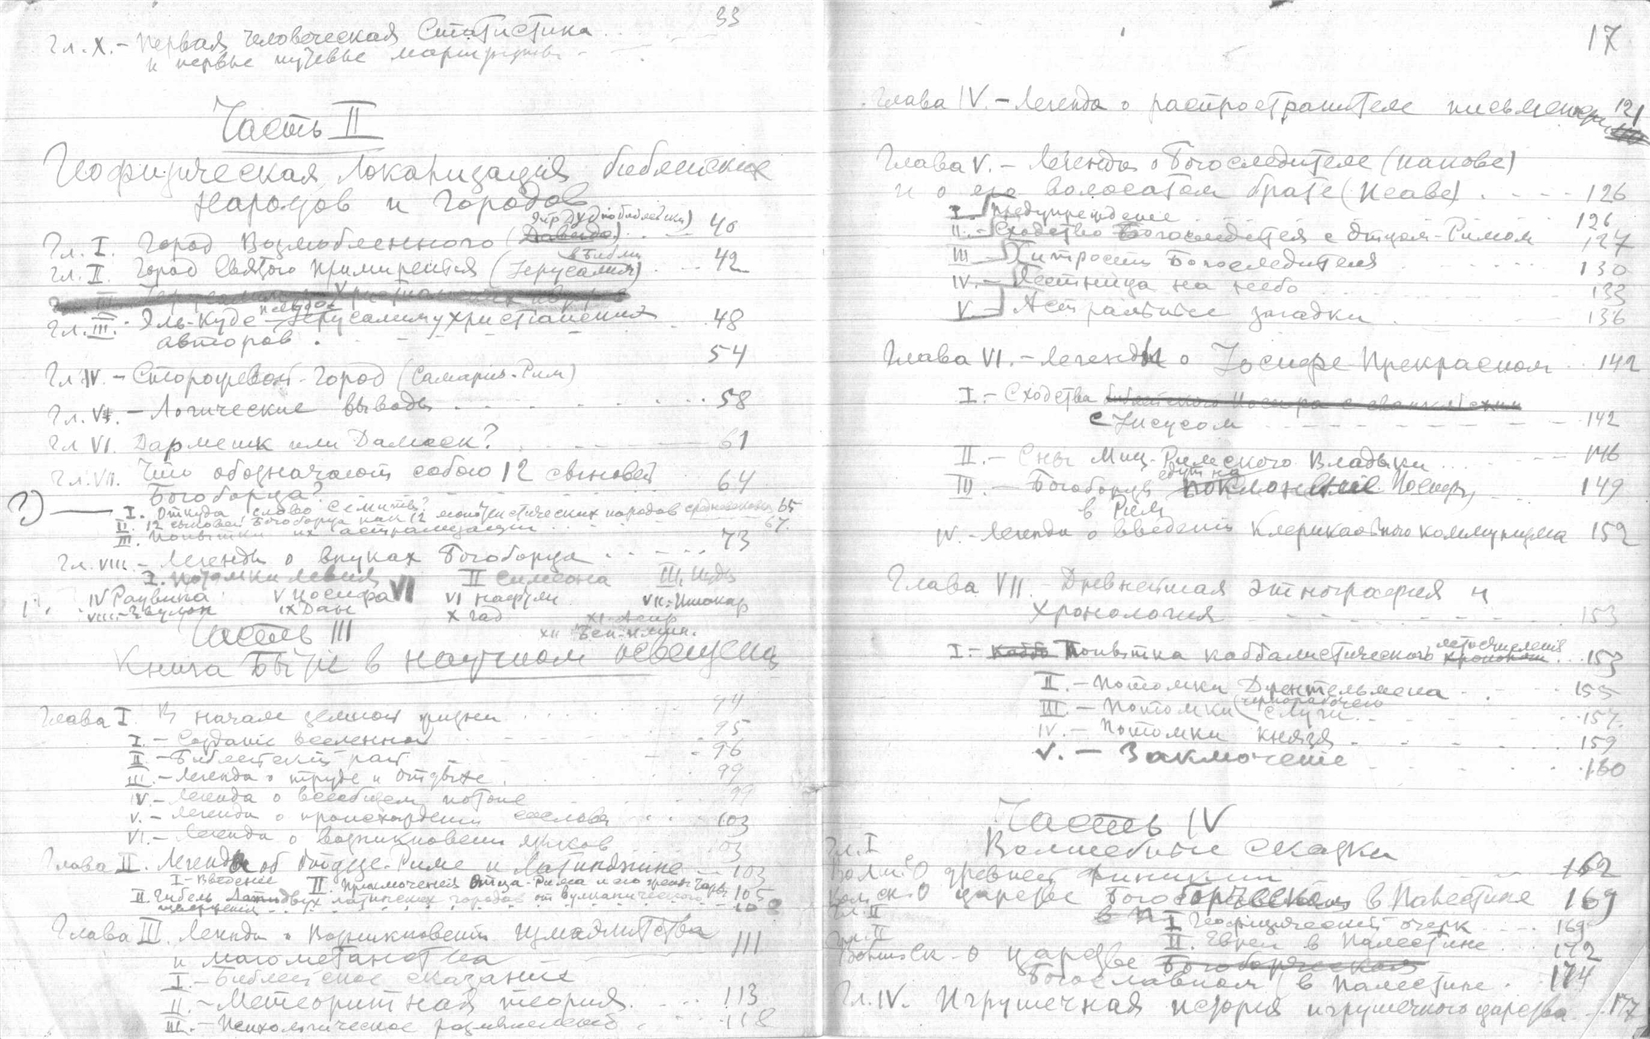 33
Гл. X. – Первая человеческая Статистика
и первые путевые маршруты
Часть II
Геофизическая локализация библейских
народов и городов
Гл. I. Город Возлюбленного 40
Гл. II. Город Святого Примирения (Иерусалим) 42
в Библии
Гл. III. Эль-Кудс Иерусалиму христианских 48
авторов.
54
Гл. IV – Сторожевой-Город (Самария-Рим)
Гл. V. – Логические выводы 58
Гл. VI. Дармешк или Дамаск? 61
Гл. VII. Что обозначают собою 12 сыновей 64
Богоборца?
I. Откуда слово семиты? 65
II. 12 сыновей Богоборца как 12 народов средневековья 67
III. Попытки их астрализации
Гл. VIII. – Легенды о внуках Богоборца 73
I. Потомки Левия II Симеона III. Иуды
IV Рувима V Иосифа VI VI Нафули VII. Иссахар
VIII. – Звулон IX Дан X Гад XI Асир
XII Бен-Ямин.
Часть III
Книга Бытия в научном освещении
Глава I. В начале земной жизни 94
I. – Создание вселенной 95
II – Библейский рай 96
III – Легенда о труде и отдыхе 99
IV. – Легенда о всеобщем потопе 99
V. – Легенда о происхождении сословий 103
VI. – Легенда о возникновении языков 103
Глава II. Легенды об Отце-Риме и Латинянине 103
I – Введение II. Приключения Отца-Рима и его 105
III. Гибель двух латинских городов от вулканического 108
извержения
Глава III. Легенды о Возникновении Измаэлитства 111
и магометанства
I – Библейское сказание
II – Метеоритная теория. 113
III. – Психологическое размышление 118
17
Глава IV. – Легенда о распространителе письменности 121
Глава V. – Легенды о Богоследителе (Иакове)
и о его волосатом брате (Исаве) 126
I. Предупреждение 126
II. – Сходство Богоследителя с Отцом-Римом 127
III Хитрости Богоследителя 130
IV. – Лестница на небо 133
V Астральные загадки 136
Глава VI. – Легенды о Иосифе Прекрасном 142
I. – Сходства
с Иисусом 142
II. – Сны Миц-Римского Владыки 146
III – Богоборцы идут на поклонение Иосифу 149
в Рим
IV. – Легенда о введении Клерикального коммунизма 152
Глава VII – Древнейшая этнография и
хронология 153
I. – Попытка каббалистического летосчисления 153
II. – Потомки Джентельмена 155
III. – Потомки (чернорабочего) слуги 157
IV. – Потомки князя 159
V. – Заключение 160
Часть IV
Гл. I Волшебные сказки
О древней Финикии 162
О царстве Богоборческом в Палестине 169
Гл. II
I Геофизический очерк 169
II. Евреи в Палестине 172
о царстве
Богославном в Палестине. 174
Гл. IV. Игрушечная история игрушечного царства 177